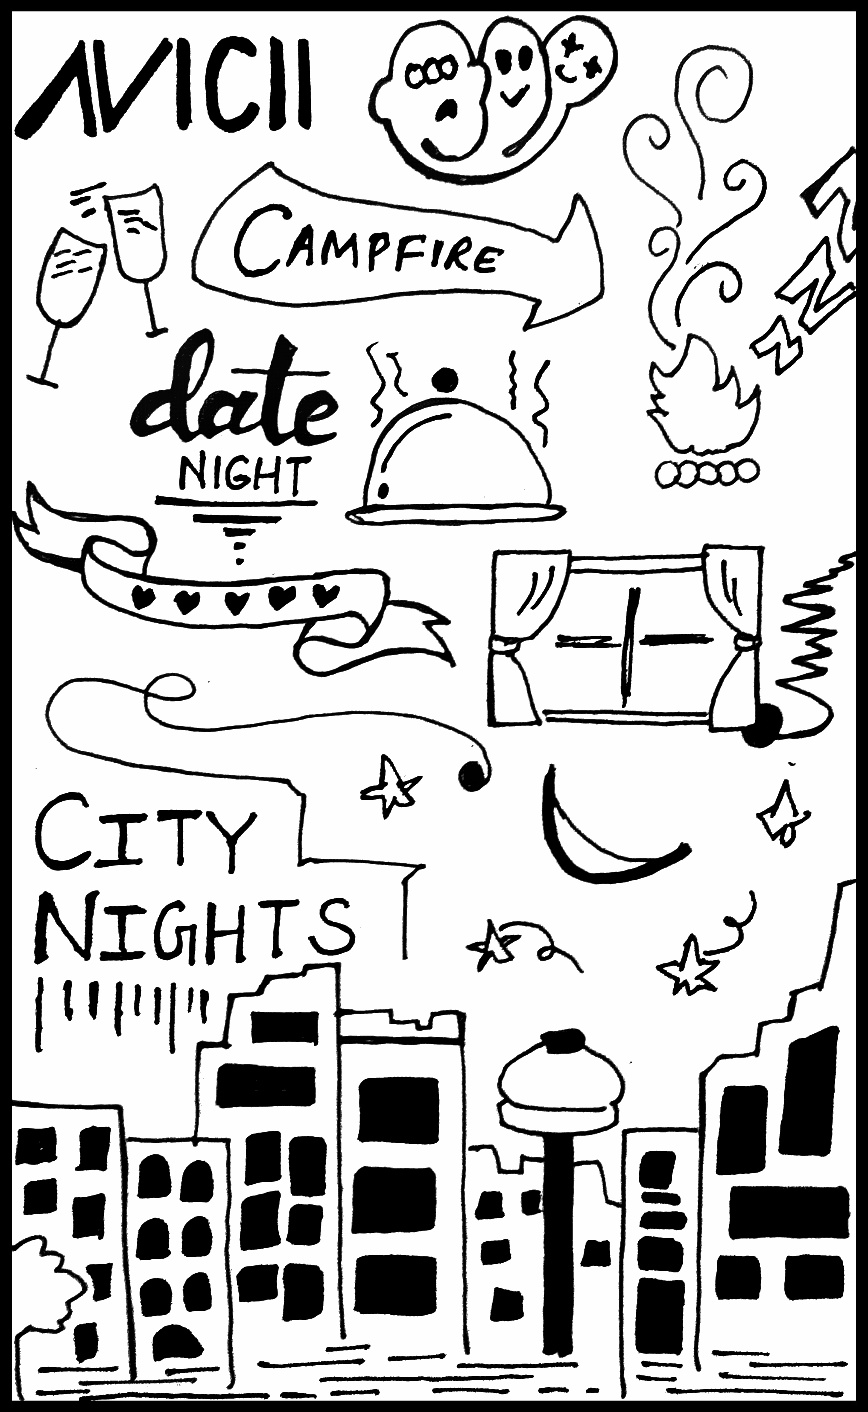 AVICII
CAMPFIRE
ZZZ
date
NIGHT
CITY
NIGHTS